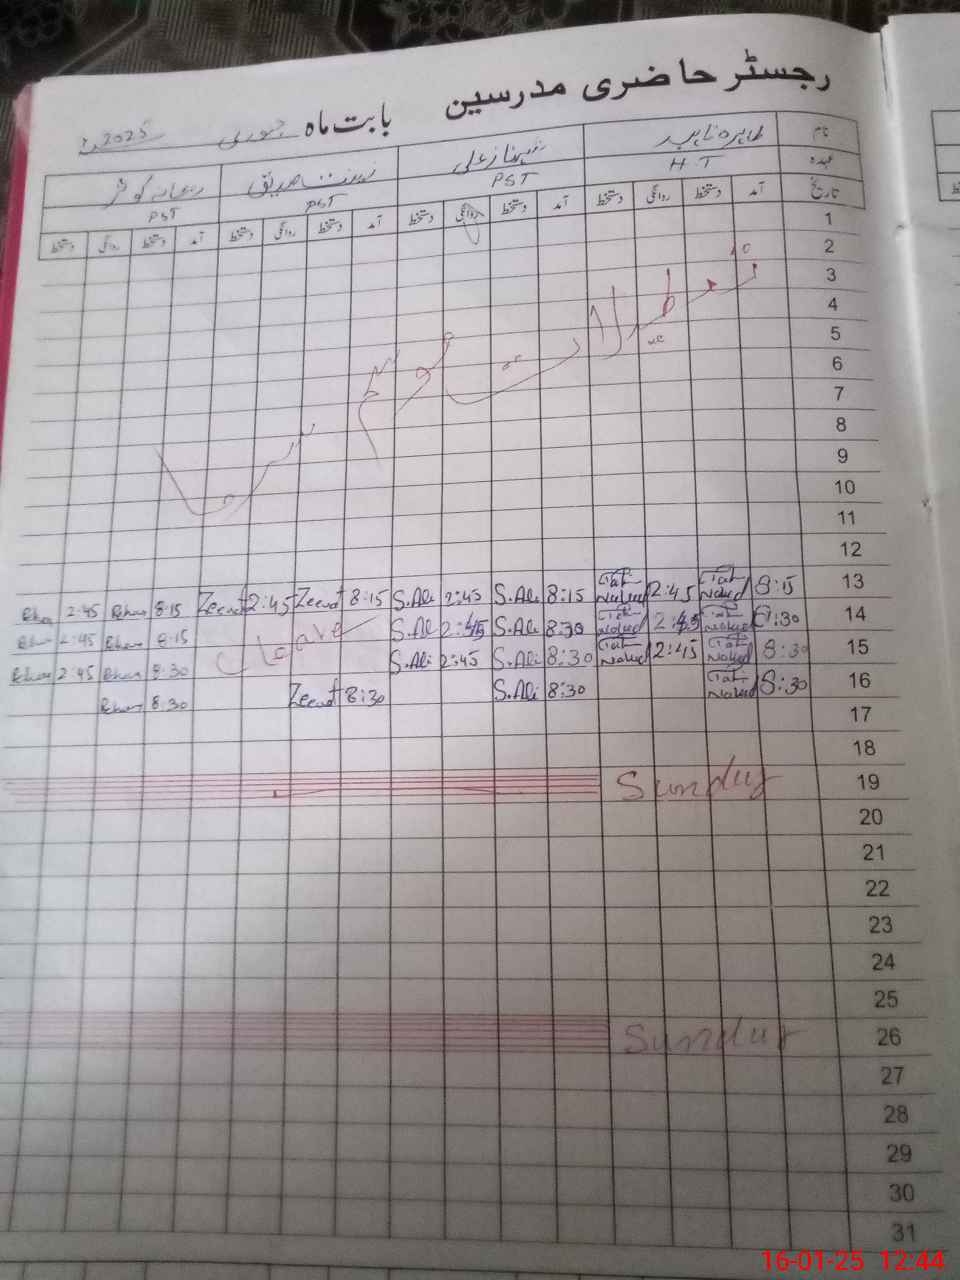 رجسٹر حاضری مدرسین بابت ماہ جنوری 2025ء
نام طاہرہ ناہید شہناز علی زینت صدیق ریحانہ کوثر
عہدہ H T PST PST PST
تاریخ آمد دستخط روانگی دستخط آمد دستخط روانگی دستخط آمد دستخط روانگی دستخط آمد دستخط روانگی دستخط
1
2
3
4
5
6
7
8
9
10
11
12
تعطیلات موسم سرما
13 8:15 Tah Naheed 2:45 Tah Naheed 8:15 S.Ali 2:45 S.Ali 8:15 Zeenat 2:45 Zeenat 8:15 Rhan 2:45 Rhan
14 8:30 Tah Naheed 2:45 Tah Naheed 8:30 S.Ali 2:45 S.Ali C/Leave 8:15 Rhan 2:45 Rhan
15 8:30 Tah Naheed 2:45 Tah Naheed 8:30 S.Ali 2:45 S.Ali 8:30 Rhan 2:45 Rhan
16 8:30 Tah Naheed 8:30 S.Ali 8:30 Zeenat 8:30 Rhan
17
18
19 Sunday
20
21
22
23
24
25
26 Sunday
27
28
29
30
31
16-01-25 12:44